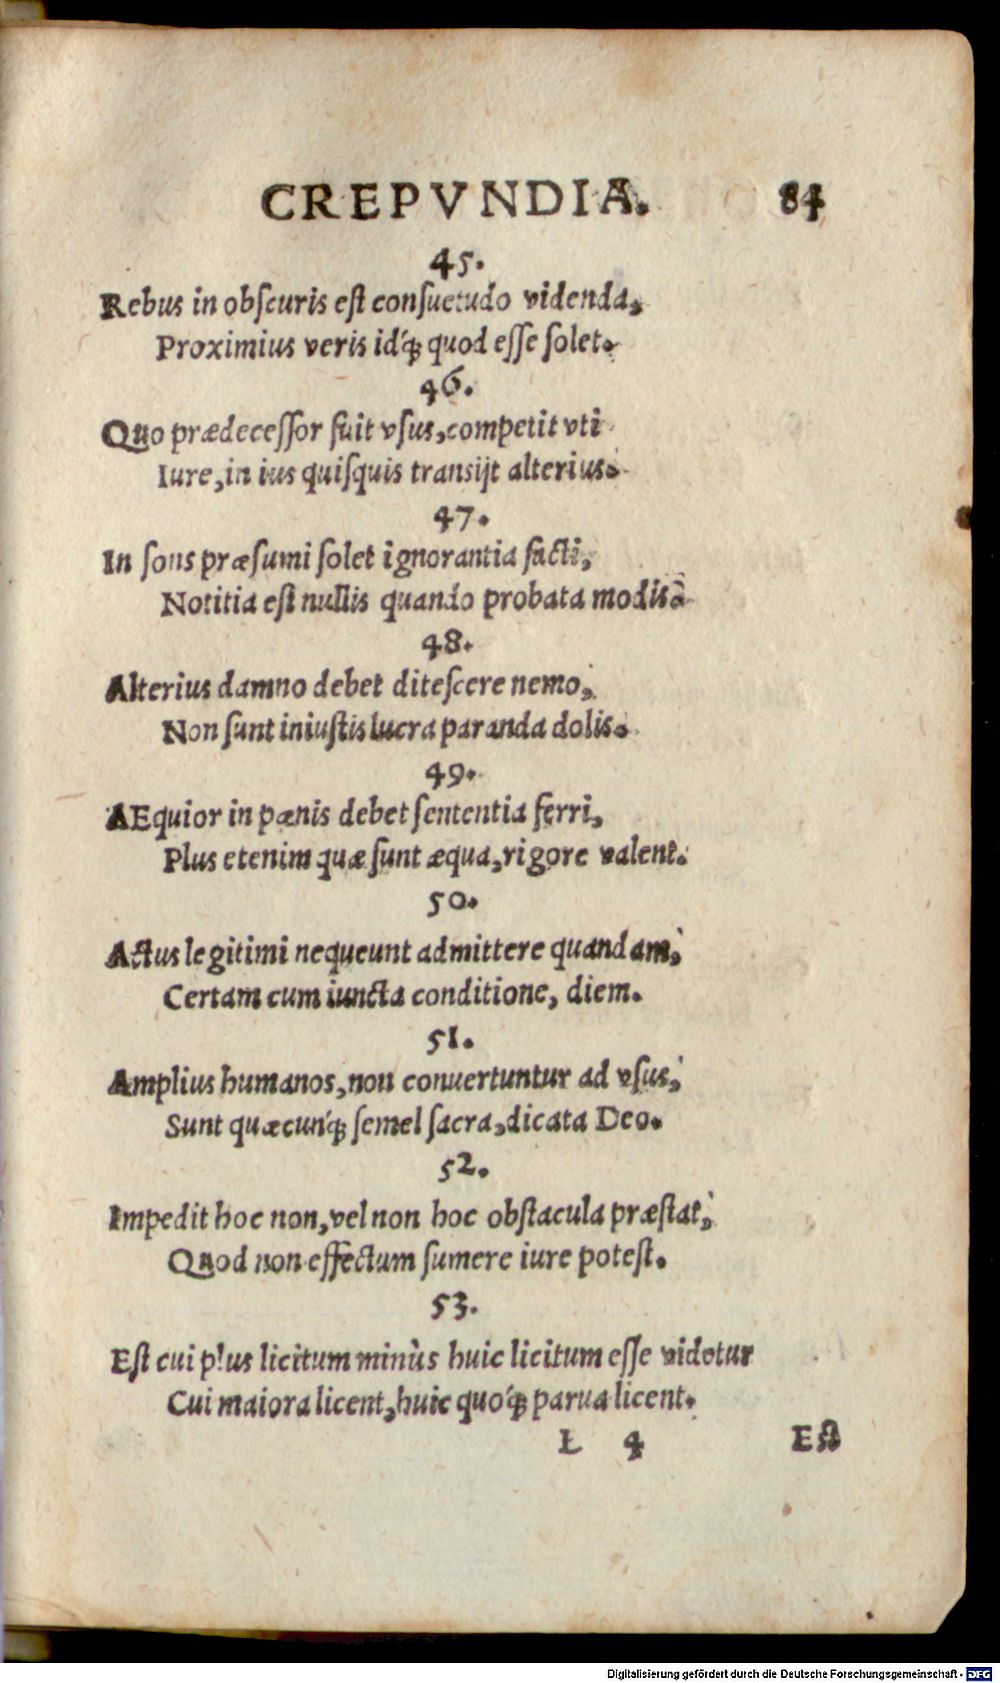 CREPVNDIA. 84
45.
Rebus in obſcuris eſt conſuetudo videnda,
Proximius veris idq́; quod eſſe ſolet.
46.
Quo prædeceſſor fuit vſus, competit vti
Iure, in ius quiſquis tranſijt alterius.
47.
In ſons præſumi ſolet ignorantia facti,
Notitia eſt nullis quando probata modis.
48.
Alterius damno debet diteſcere nemo,
Non ſunt iniuſtis lucra paranda dolis.
49.
AEquior in pœnis debet ſententia ferri,
Plus etenim quæ ſunt æqua, rigore valent.
50.
Actus legitimi nequeunt admittere quandam,
Certam cum iuncta conditione, diem.
51.
Amplius humanos, non conuertuntur ad vſus,
Sunt quæcunq́; ſemel ſacra, dicata Deo.
52.
Impedit hoc non, vel non hoc obſtacula præſtat,
Quod non effectum ſumere iure poteſt.
53.
Eſt cui plus licitum minùs huic licitum eſſe videtur
Cui maiora licent, huic quoq́; parua licent.
L 4 Eſt
Digitalisierung gefördert durch die Deutsche Forschungsgemeinschaft - DFG